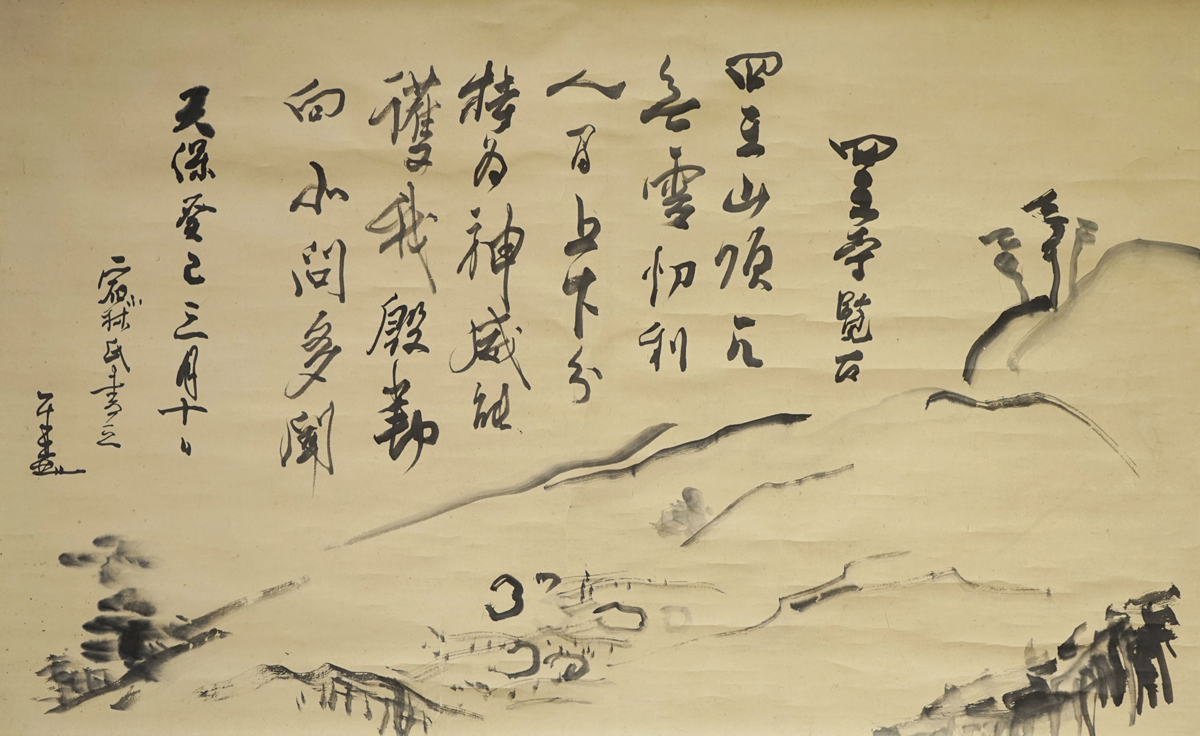 四王寺覧古
四王山頂元
無雲忉利
人間上下分
特為神威能
護我殷勤
向北問多聞
天保癸巳三月十日
氏書之